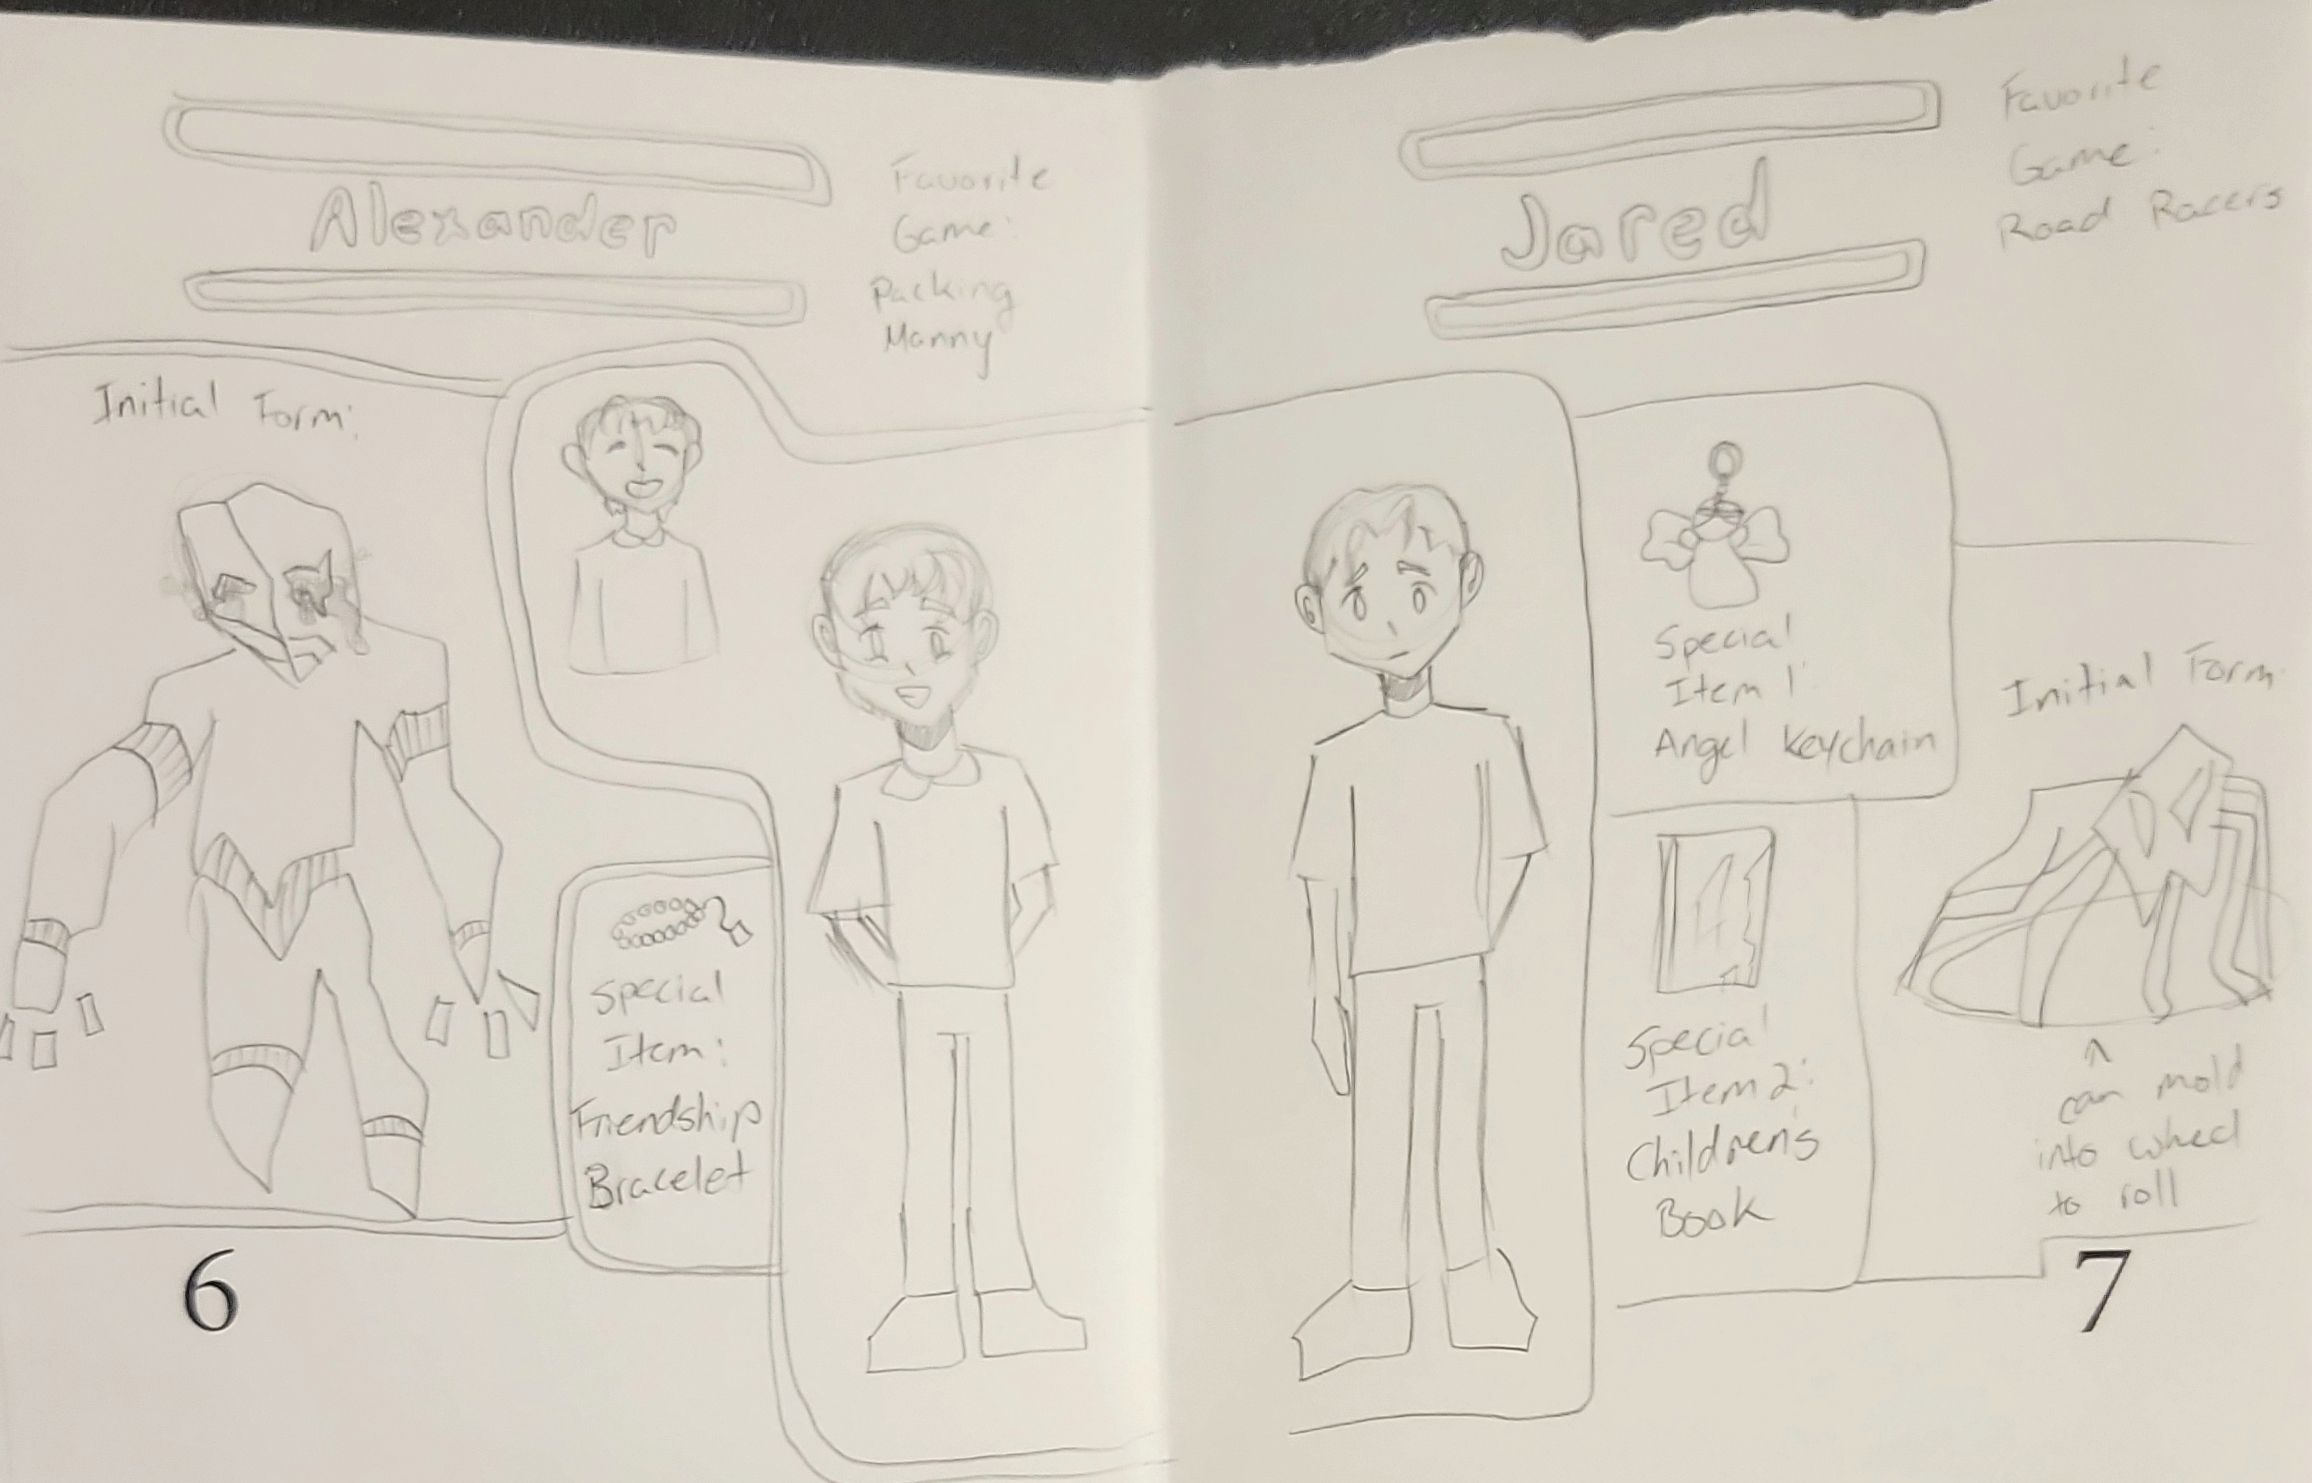 Alexander
Favorite
Game:
Packing
Manny
Initial Form:
Special
Item:
Friendship
Bracelet
6
Jared
Favorite
Game:
Road Racers
Special
Item 1:
Angel Keychain
Special
Item 2:
Children's
Book
Initial Form:
^
can mold
into wheel
to roll
7